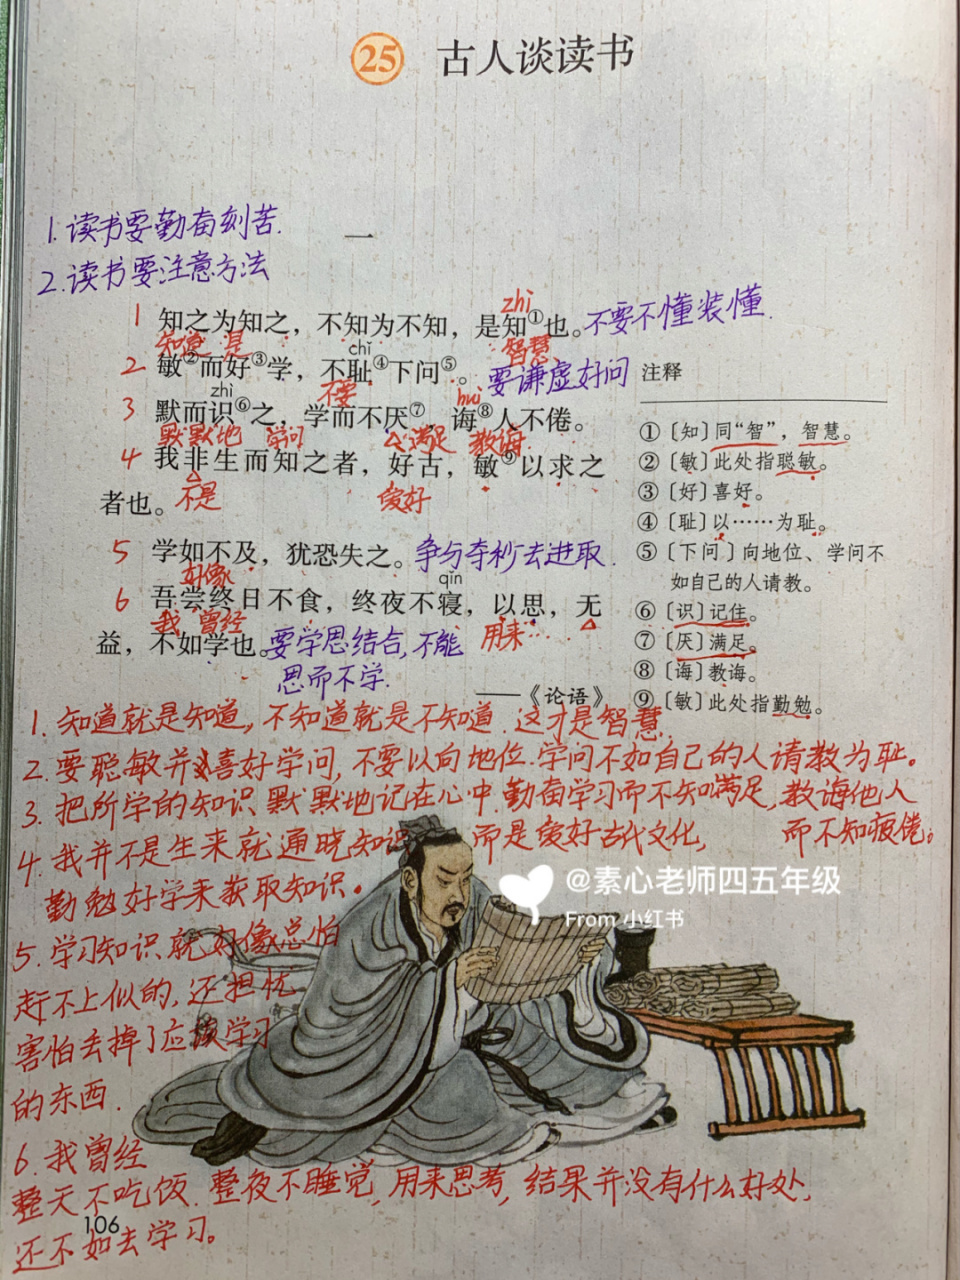 25 古人谈读书
1. 读书要勤奋刻苦.
一
2. 读书要注意方法
zhì
1 知之为知之，不知为不知，是知①也。不要不懂装懂.
知道 是 智慧
chǐ
2 敏②而好③学，不耻④下问⑤。要谦虚好问
不要
zhì huì
3 默而识⑥之，学而不厌⑦，诲⑧人不倦。
默默地 学问 满足 教诲
4 我非生而知之者，好古，敏⑨以求之
者也。不是 爱好
5 学如不及，犹恐失之。争分夺秒去进取.
好像
qǐn
6 吾尝终日不食，终夜不寝，以思，无
我 曾经 用来…
益，不如学也。要学思结合,不能
思而不学.
——《论语》
注释
①〔知〕同“智”，智慧。
②〔敏〕此处指聪敏。
③〔好〕喜好。
④〔耻〕以……为耻。
⑤〔下问〕向地位、学问不
如自己的人请教。
⑥〔识〕记住。
⑦〔厌〕满足。
⑧〔诲〕教诲。
⑨〔敏〕此处指勤勉。
1. 知道就是知道, 不知道就是不知道. 这才是智慧.
2. 要聪敏并喜好学问, 不要以向地位.学问不如自己的人请教为耻。
3. 把所学的知识默默地记在心中.勤奋学习而不知满足,教诲他人
而不知疲倦。
4. 我并不是生来就通晓知识 而是爱好古代文化,
勤勉好学来获取知识。
5. 学习知识就好像总怕
赶不上似的, 还担忧
害怕丢掉了应该学习
的东西.
6. 我曾经
整天不吃饭. 整夜不睡觉, 用来思考, 结果并没有什么好处,
还不如去学习。
106
@素心老师四五年级
From 小红书